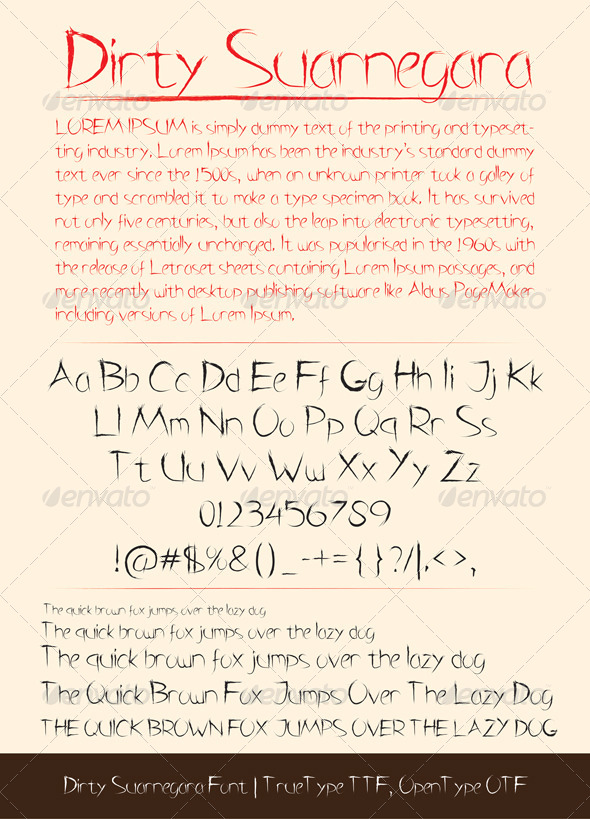 Dirty Suarnegara
LOREM IPSUM is simply dummy text of the printing and typeset-
ting industry. Lorem Ipsum has been the industry's standard dummy
text ever since the 1500s, when an unknown printer took a galley of
type and scrambled it to make a type specimen book. It has survived
not only five centuries, but also the leap into electronic typesetting,
remaining essentially unchanged. It was popularised in the 1960s with
the release of Letraset sheets containing Lorem Ipsum passages, and
more recently with desktop publishing software like Aldus PageMaker
including versions of Lorem Ipsum.
Aa Bb Cc Dd Ee Ff Gg Hh Ii Jj Kk
Ll Mm Nn Oo Pp Qq Rr Ss
Tt Uu Vv Ww Xx Yy Zz
0123456789
!@#$%&()_-+={}?/|.<>,
The quick brown fox jumps over the lazy dog
The quick brown fox jumps over the lazy dog
The quick brown fox jumps over the lazy dog
The Quick Brown Fox Jumps Over The Lazy Dog
THE QUICK BROWN FOX JUMPS OVER THE LAZY DOG
Dirty Suarnegara Font | TrueType TTF, OpenType OTF
envato
envato
envato
envato
envato
envato
envato
envato
envato
envato
envato
envato